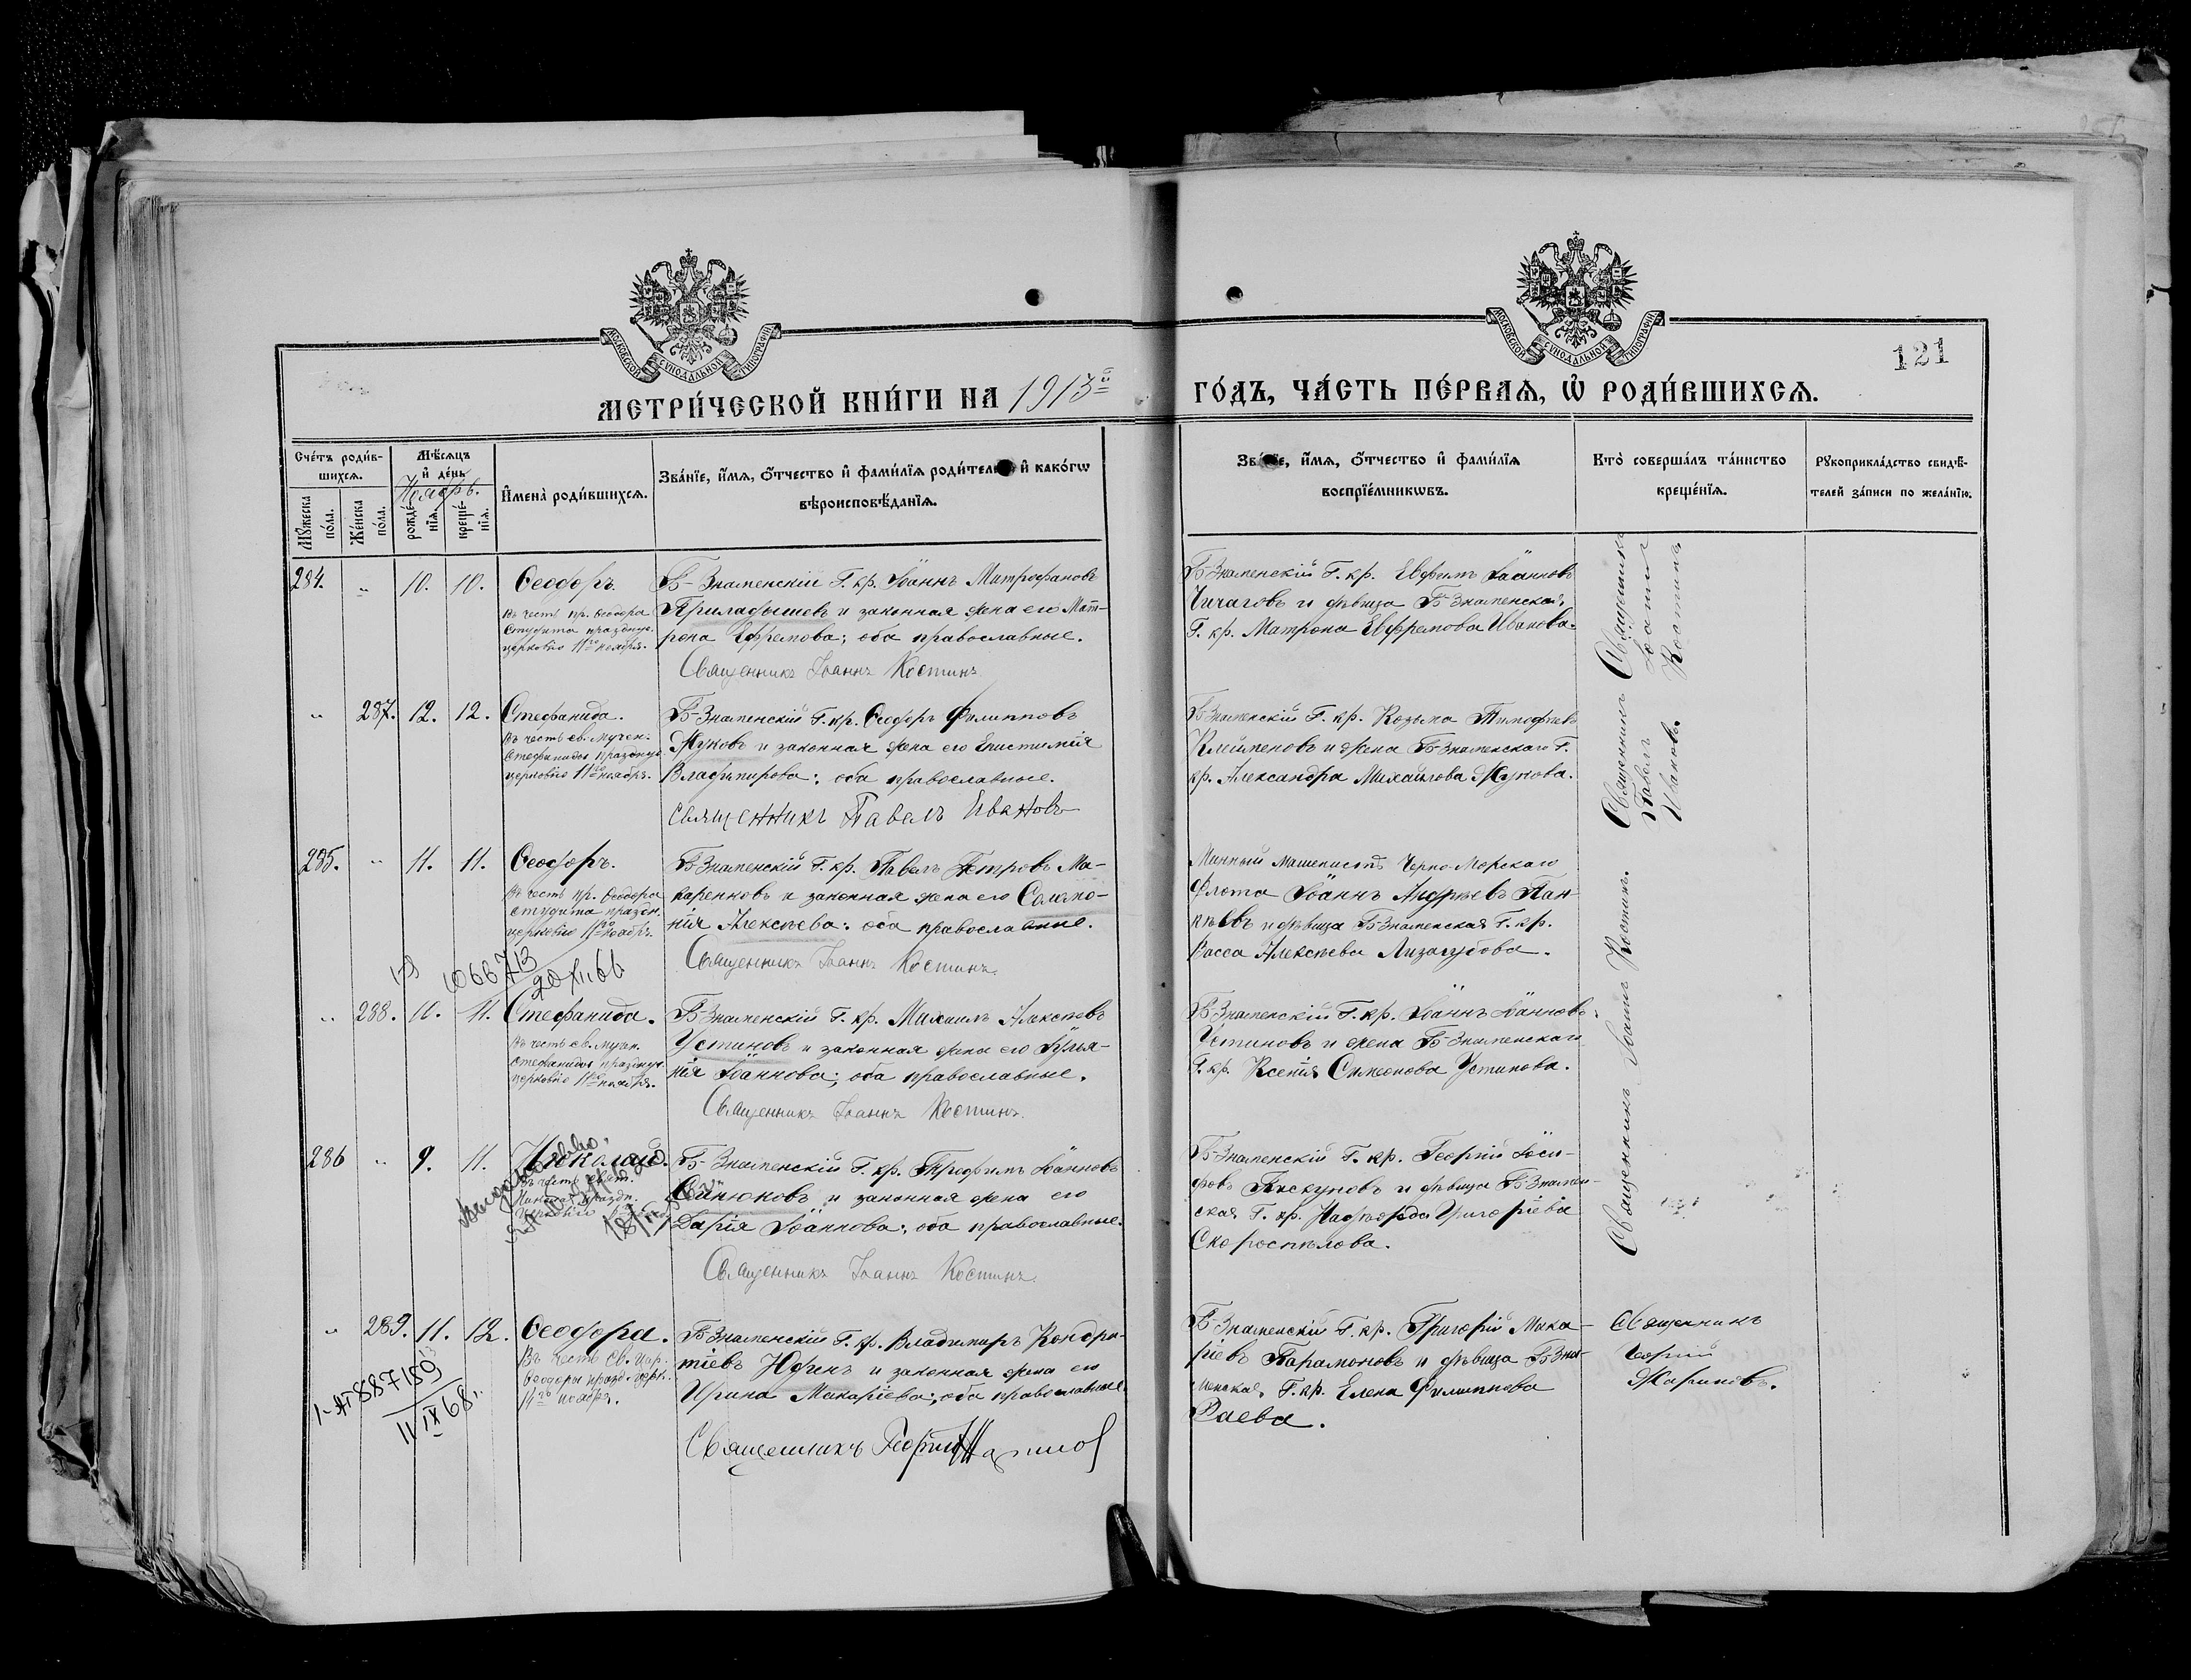 МОСКОВСКОЙ СУНОДАЛЬНОЙ ТИПОГРАФІИ
МОСКОВСКОЙ СУНОДАЛЬНОЙ ТИПОГРАФІИ
121
МЕТРИ́ЧЕСКОЙ КНИ́ГИ НА 1913й ГО́ДЪ, ЧА́СТЬ ПЕ́РВАѦ, Ѡ҆ РОДИ́ВШИХСѦ.
Сче́тъ роди́в-
шихсѧ.
Мꙋ́жеска по́ла.
Же́нска по́ла.
Мѣ́сѧцъ
и҆ де́нь
Ноябрь.
рожде́-
нїѧ.
креще́-
нїѧ.
И҆мена̀ роди́вшихсѧ.
Зва́нїе, и҆́мѧ, о҆́тчество и҆ фами́лїѧ роди́телей и҆ како́гѡ
вѣроисповѣ́данїѧ.
Зва́нїе, и҆́мѧ, о҆́тчество и҆ фами́лїѧ
воспрїе́мникѡвъ.
Кто̀ соверша́лъ та́инство
креще́нїѧ.
Рꙋкоприкла́дство свидѣ́-
телей за́писи по жела́нїю.
284. " 10. 10. Ѳеодоръ.
Въ честь пр. Ѳеодора
Студита празднуе.
церковію 11го ноября.
Б-Знаменскій Г. кр. Іоаннъ Митрофановъ
и законная жена его Мат-
рона Ефремова; оба православные.
Священникъ Іоаннъ Костинъ
Б-Знаменскій Г. кр. Евфимъ Іоанновъ
Чичаговъ и дѣвица Б-Знаменская
Г. кр. Матрона Евфремова Иванова.
Священникъ
Іоаннъ
Костинъ
" 287. 12. 12. Стефанида.
Въ честь св. мучен.
Стефаниды празднуе.
церковію 11го ноябрь.
Б-Знаменскій Г. кр. Ѳеодоръ Филипповъ
Жуковъ и законная жена его Епистимія
Владимірова; оба православные.
Священникъ Павелъ Ивановъ
Б-Знаменскій Г. кр. Козьма Тимофеевъ
Клейменовъ и жена Б-Знаменскаго Г.
кр. Александра Михайлова Жукова.
Священникъ
Павелъ
Ивановъ.
285. " 11. 11. Ѳеодоръ.
Въ честь пр. Ѳеодора
студита праздн.
церковію 11го ноябрь.
Б-Знаменскій Г. кр. Павелъ Петровъ Ма-
каренковъ и законная жена его Соломо-
нія Алексѣева; оба православные.
Священникъ Іоаннъ Костинъ.
Минный машенистъ Черно-Морскаго
Флота Іоаннъ Андреевъ Пан-
и дѣвица Б-Знаменская Г. кр.
Васса Алексѣева Лизагубова.
20/XII.66
" 288. 10. 11. Стефанида.
Въ честь св. мучен.
Стефаниды празднуе.
церковію 11го ноября.
Б-Знаменскій Г. кр. Михаилъ Алексѣевъ
Устиновъ и законная жена его Іулья-
нія Іоаннова; оба православные.
Священникъ Іоаннъ Костинъ.
Б-Знаменскій Г. кр. Іоаннъ Іоанновъ
Устиновъ и жена Б-Знаменскаго
Г. кр. Ксенія Симеонова Устинова.
Священникъ Іоаннъ Костинъ.
286 " 9. 11. Николай.
Б-Знаменскій Г. кр. Трофимъ Іоанновъ
Синюковъ и законная жена его
Дарія Іоаннова; оба православные.
Священникъ Іоаннъ Костинъ.
Б-Знаменскій Г. кр. Георгій Іоси-
фовъ Пискуновъ и дѣвица Б-Знамен-
ская Г. кр. Надежда Григоріева
Скороспѣлова.
" 289. 11. 12. Ѳеодора.
Въ честь св. цар.
Ѳеодоры празд. церк.
11го ноября.
11/IX 68 г.
Б-Знаменскій Г. кр. Владиміръ Кондра-
тіевъ Юдинъ и законная жена его
Ирина Макаріева; оба православные.
Священникъ Георгій Жариновъ
Б-Знаменскій Г. кр. Григорій Мака-
ріевъ Парамоновъ и дѣвица Б-Зна-
менская Г. кр. Елена Филиппова
Раева.
Священникъ
Георгій
Жариновъ.